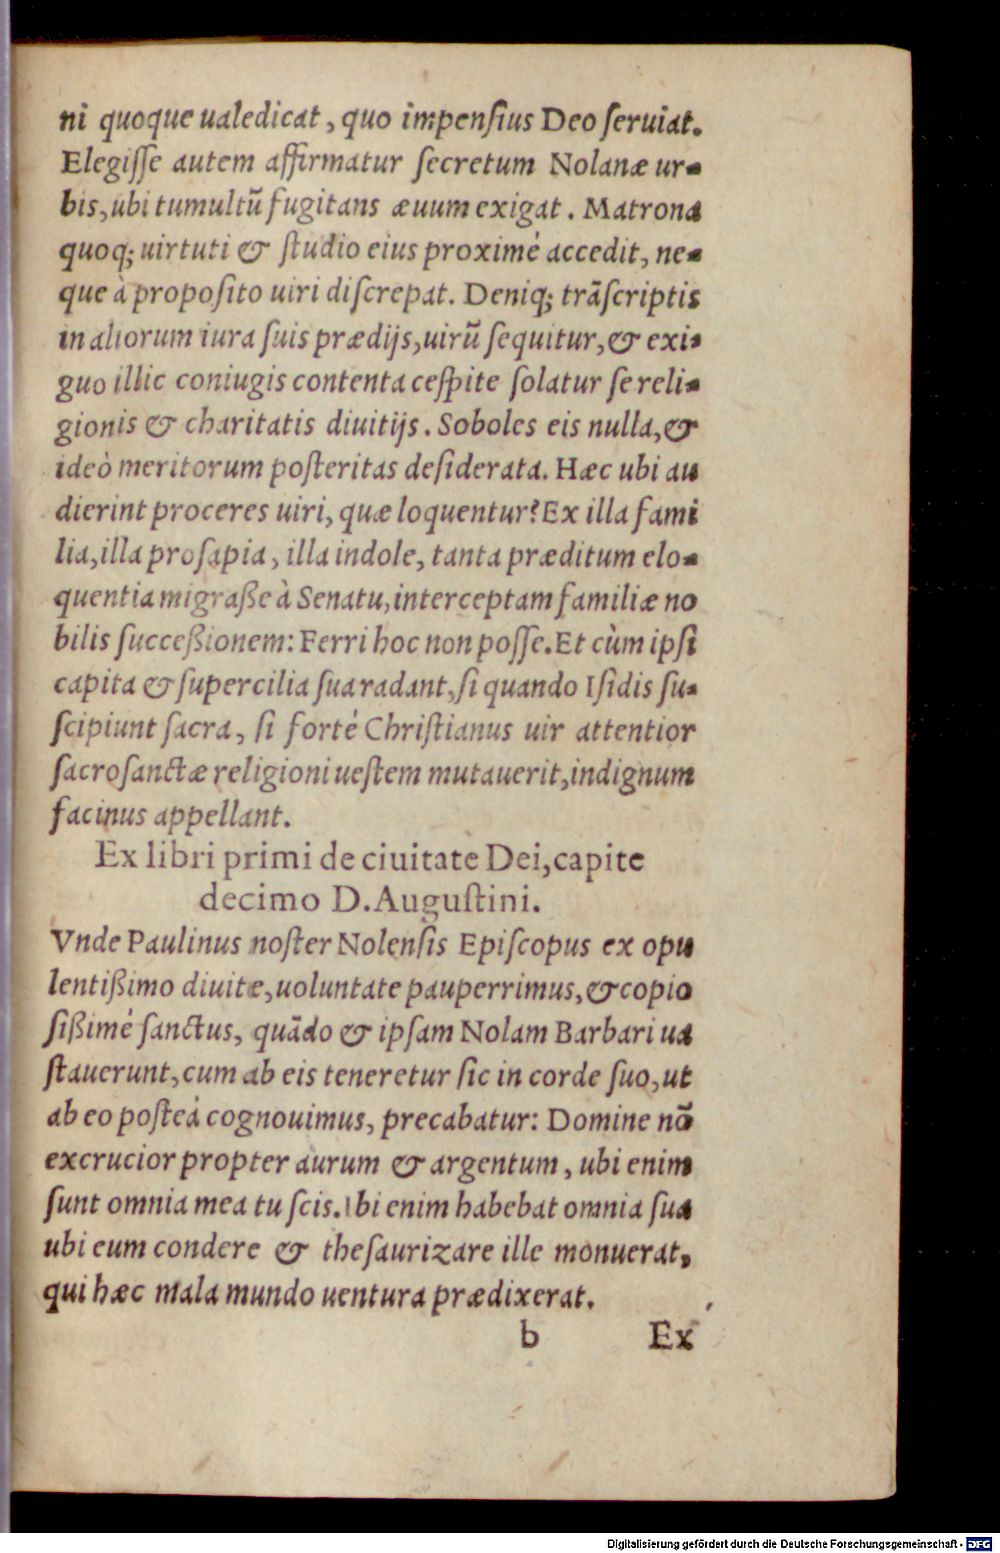 ni quoque ualedicat, quo impensius Deo seruiat.
Elegisse autem affirmatur secretum Nolanæ ur-
bis, ubi tumultũ fugitans æuum exigat. Matrona
quoq; uirtuti & studio eius proximè accedit, ne-
que à proposito uiri discrepat. Deniq; trãscriptis
in aliorum iura suis prædijs, uirũ sequitur, & exi-
guo illic coniugis contenta cespite solatur se reli-
gionis & charitatis diuitijs. Soboles eis nulla, &
ideò meritorum posteritas desiderata. Hæc ubi au
dierint proceres uiri, quæ loquentur? Ex illa fami
lia, illa prosapia, illa indole, tanta præditum elo-
quentia migraße à Senatu, interceptam familiæ no
bilis succeßionem: Ferri hoc non posse. Et cùm ipsi
capita & supercilia sua radant, si quando Isidis su-
scipiunt sacra, si fortè Christianus uir attentior
sacrosanctæ religioni uestem mutauerit, indignum
facinus appellant.
Ex libri primi de ciuitate Dei, capite
decimo D. Augustini.
Vnde Paulinus noster Nolensis Episcopus ex opu
lentißimo diuite, uoluntate pauperrimus, & copio
sißimè sanctus, quãdo & ipsam Nolam Barbari ua
stauerunt, cum ab eis teneretur sic in corde suo, ut
ab eo posteà cognouimus, precabatur: Domine nõ
excrucior propter aurum & argentum, ubi enim
sunt omnia mea tu scis. Ibi enim habebat omnia sua
ubi eum condere & thesaurizare ille monuerat,
qui hæc mala mundo uentura prædixerat.
b Ex
Digitalisierung gefördert durch die Deutsche Forschungsgemeinschaft - DFG